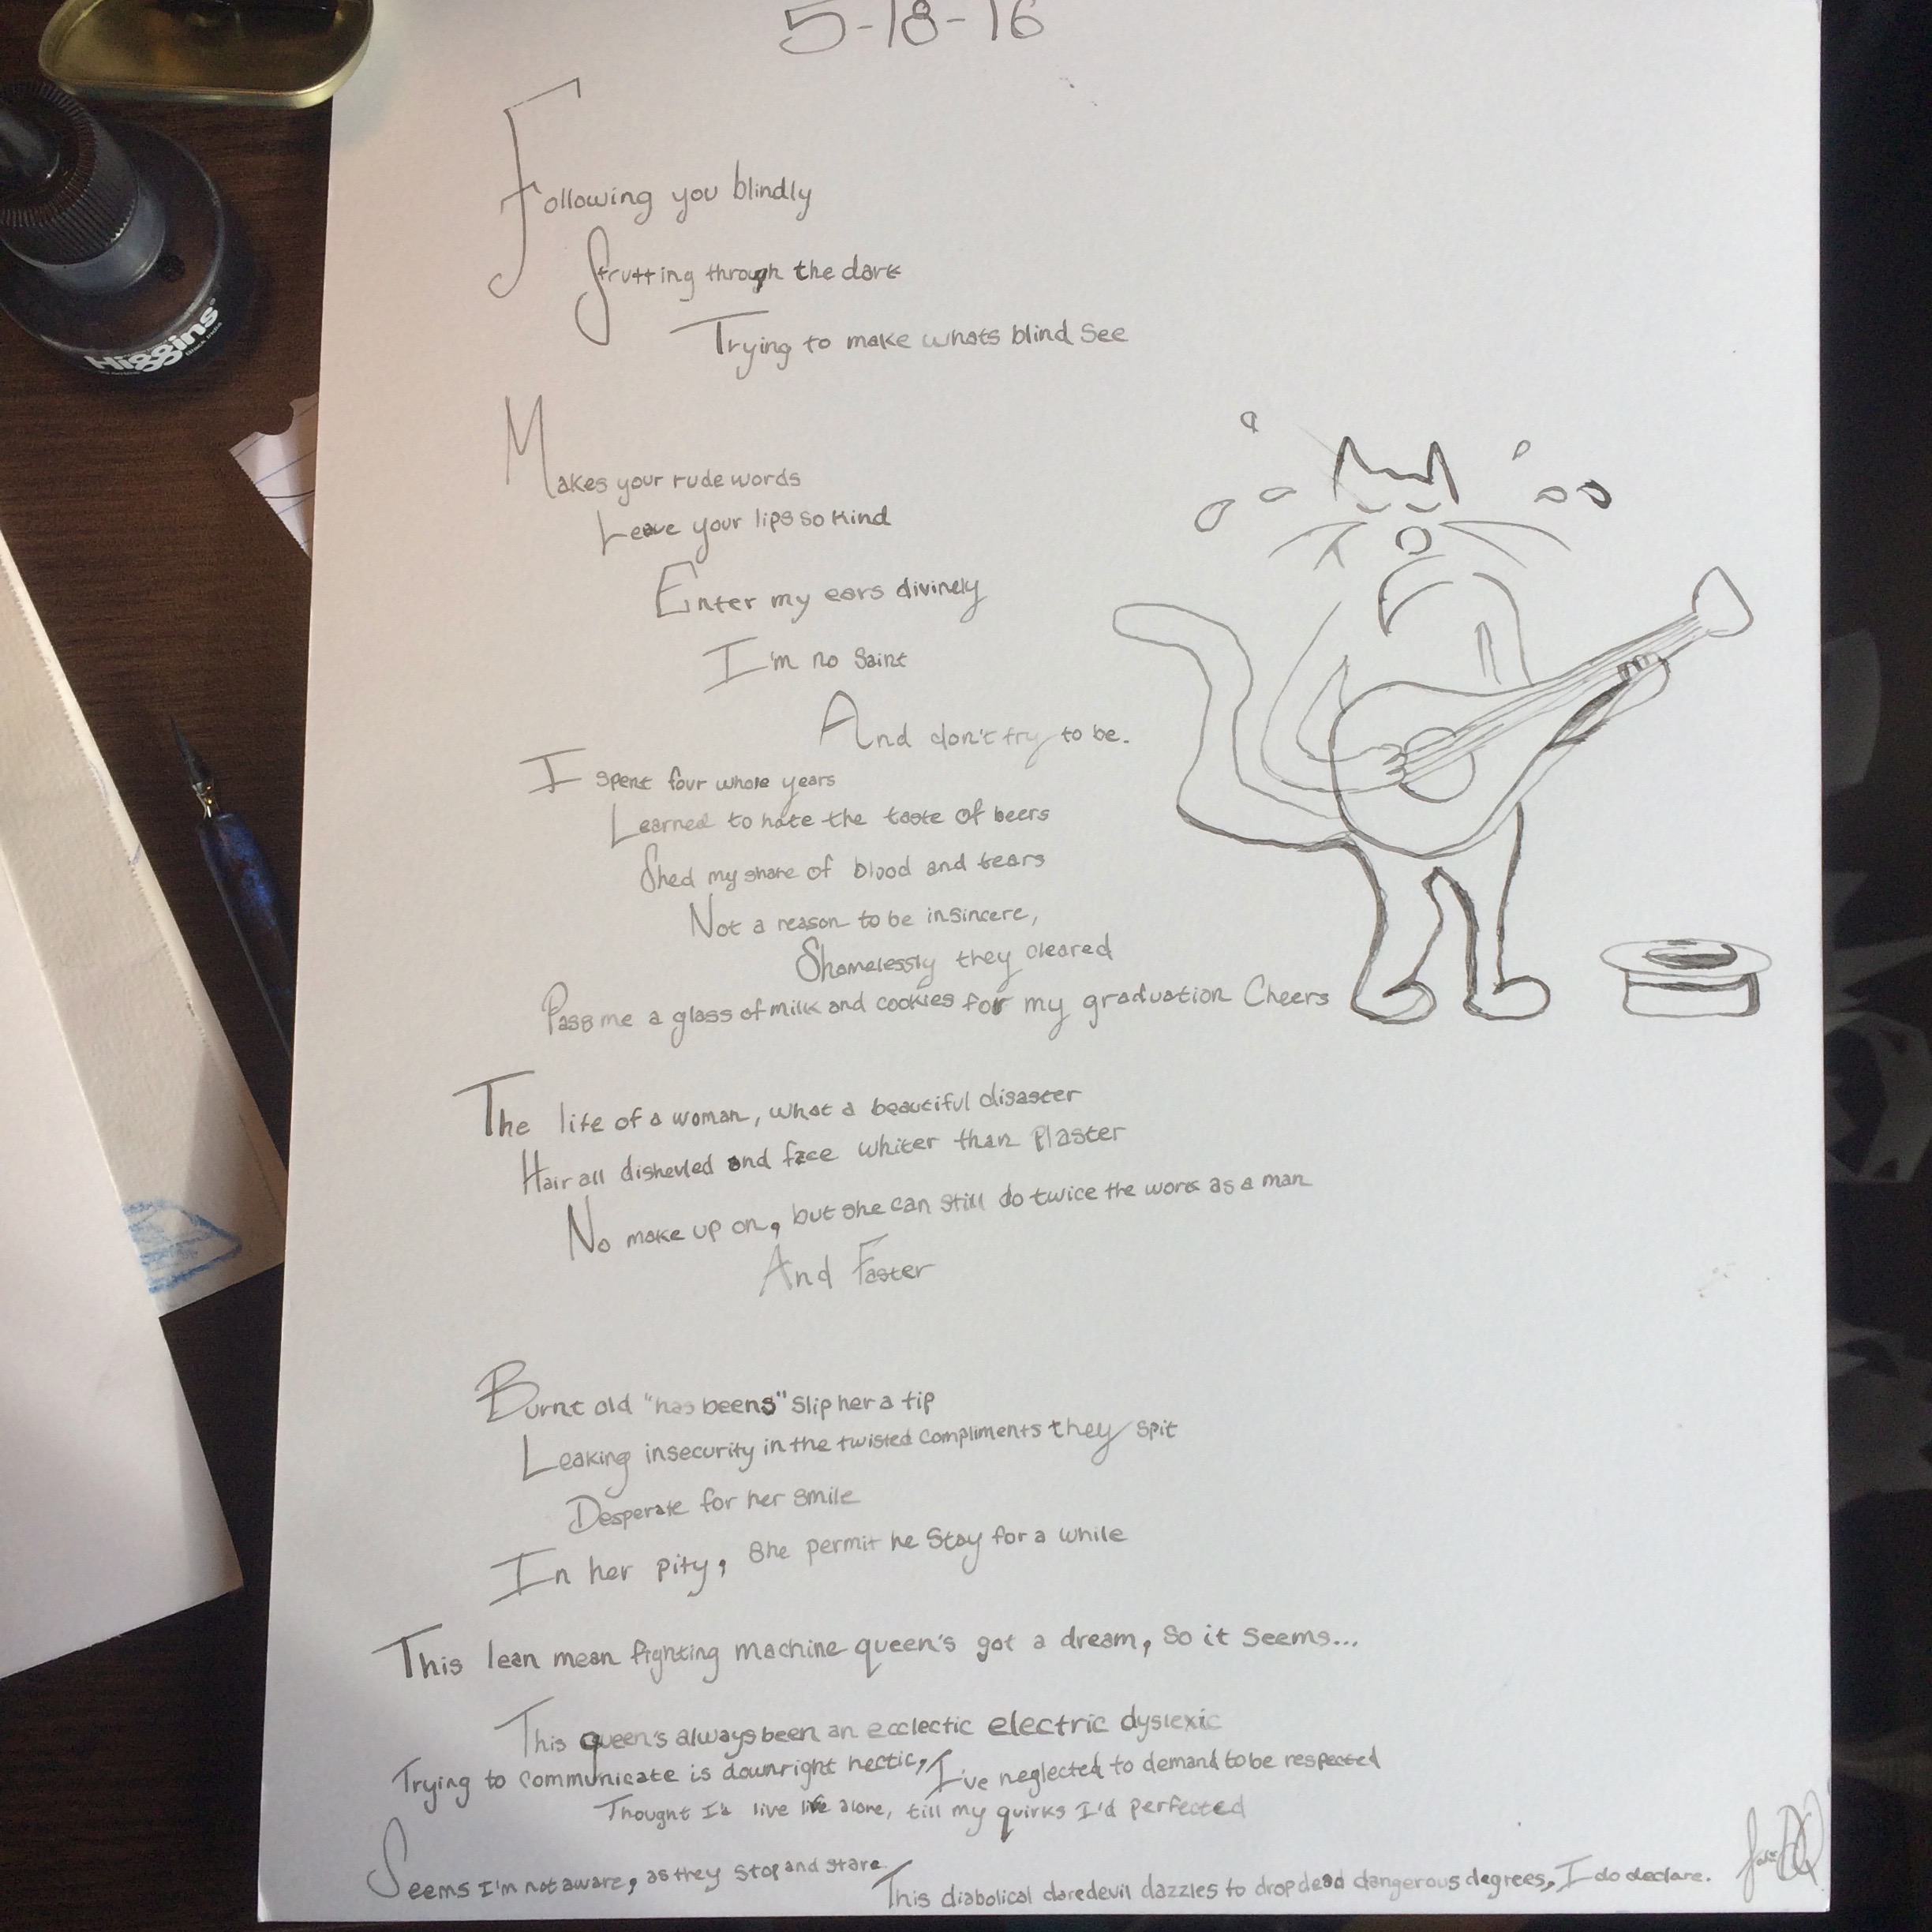 5-18-16
Following you blindly
Strutting through the dark
Trying to make whats blind see
Makes your rude words
Leave your lips so kind
Enter my ears divinely
I'm no Saint
And don't try to be.
I spent four whole years
Learned to hate the taste of beers
Shed my share of blood and tears
Not a reason to be insincere,
Shamelessly they cleared
Pass me a glass of milk and cookies for my graduation Cheers
The life of a woman, what a beautiful disaster
Hair all dishevled and face whiter than Plaster
No make up on, but she can still do twice the work as a man
And Faster
Burnt old "has beens" slip her a tip
Leaking insecurity in the twisted compliments they spit
Desperate for her smile
In her pity, she permit he stay for a while
This lean mean fighting machine queen's got a dream, so it seems...
This queen's always been an ecclectic electric dyslexic
Trying to communicate is downright hectic, I've neglected to demand to be respected
Thought I'd live life alone, till my quirks I'd perfected
Seems I'm not aware, as they stop and stare.
This diabolical daredevil dazzles to drop dead dangerous degrees, I do declare.
Higgins
Black India